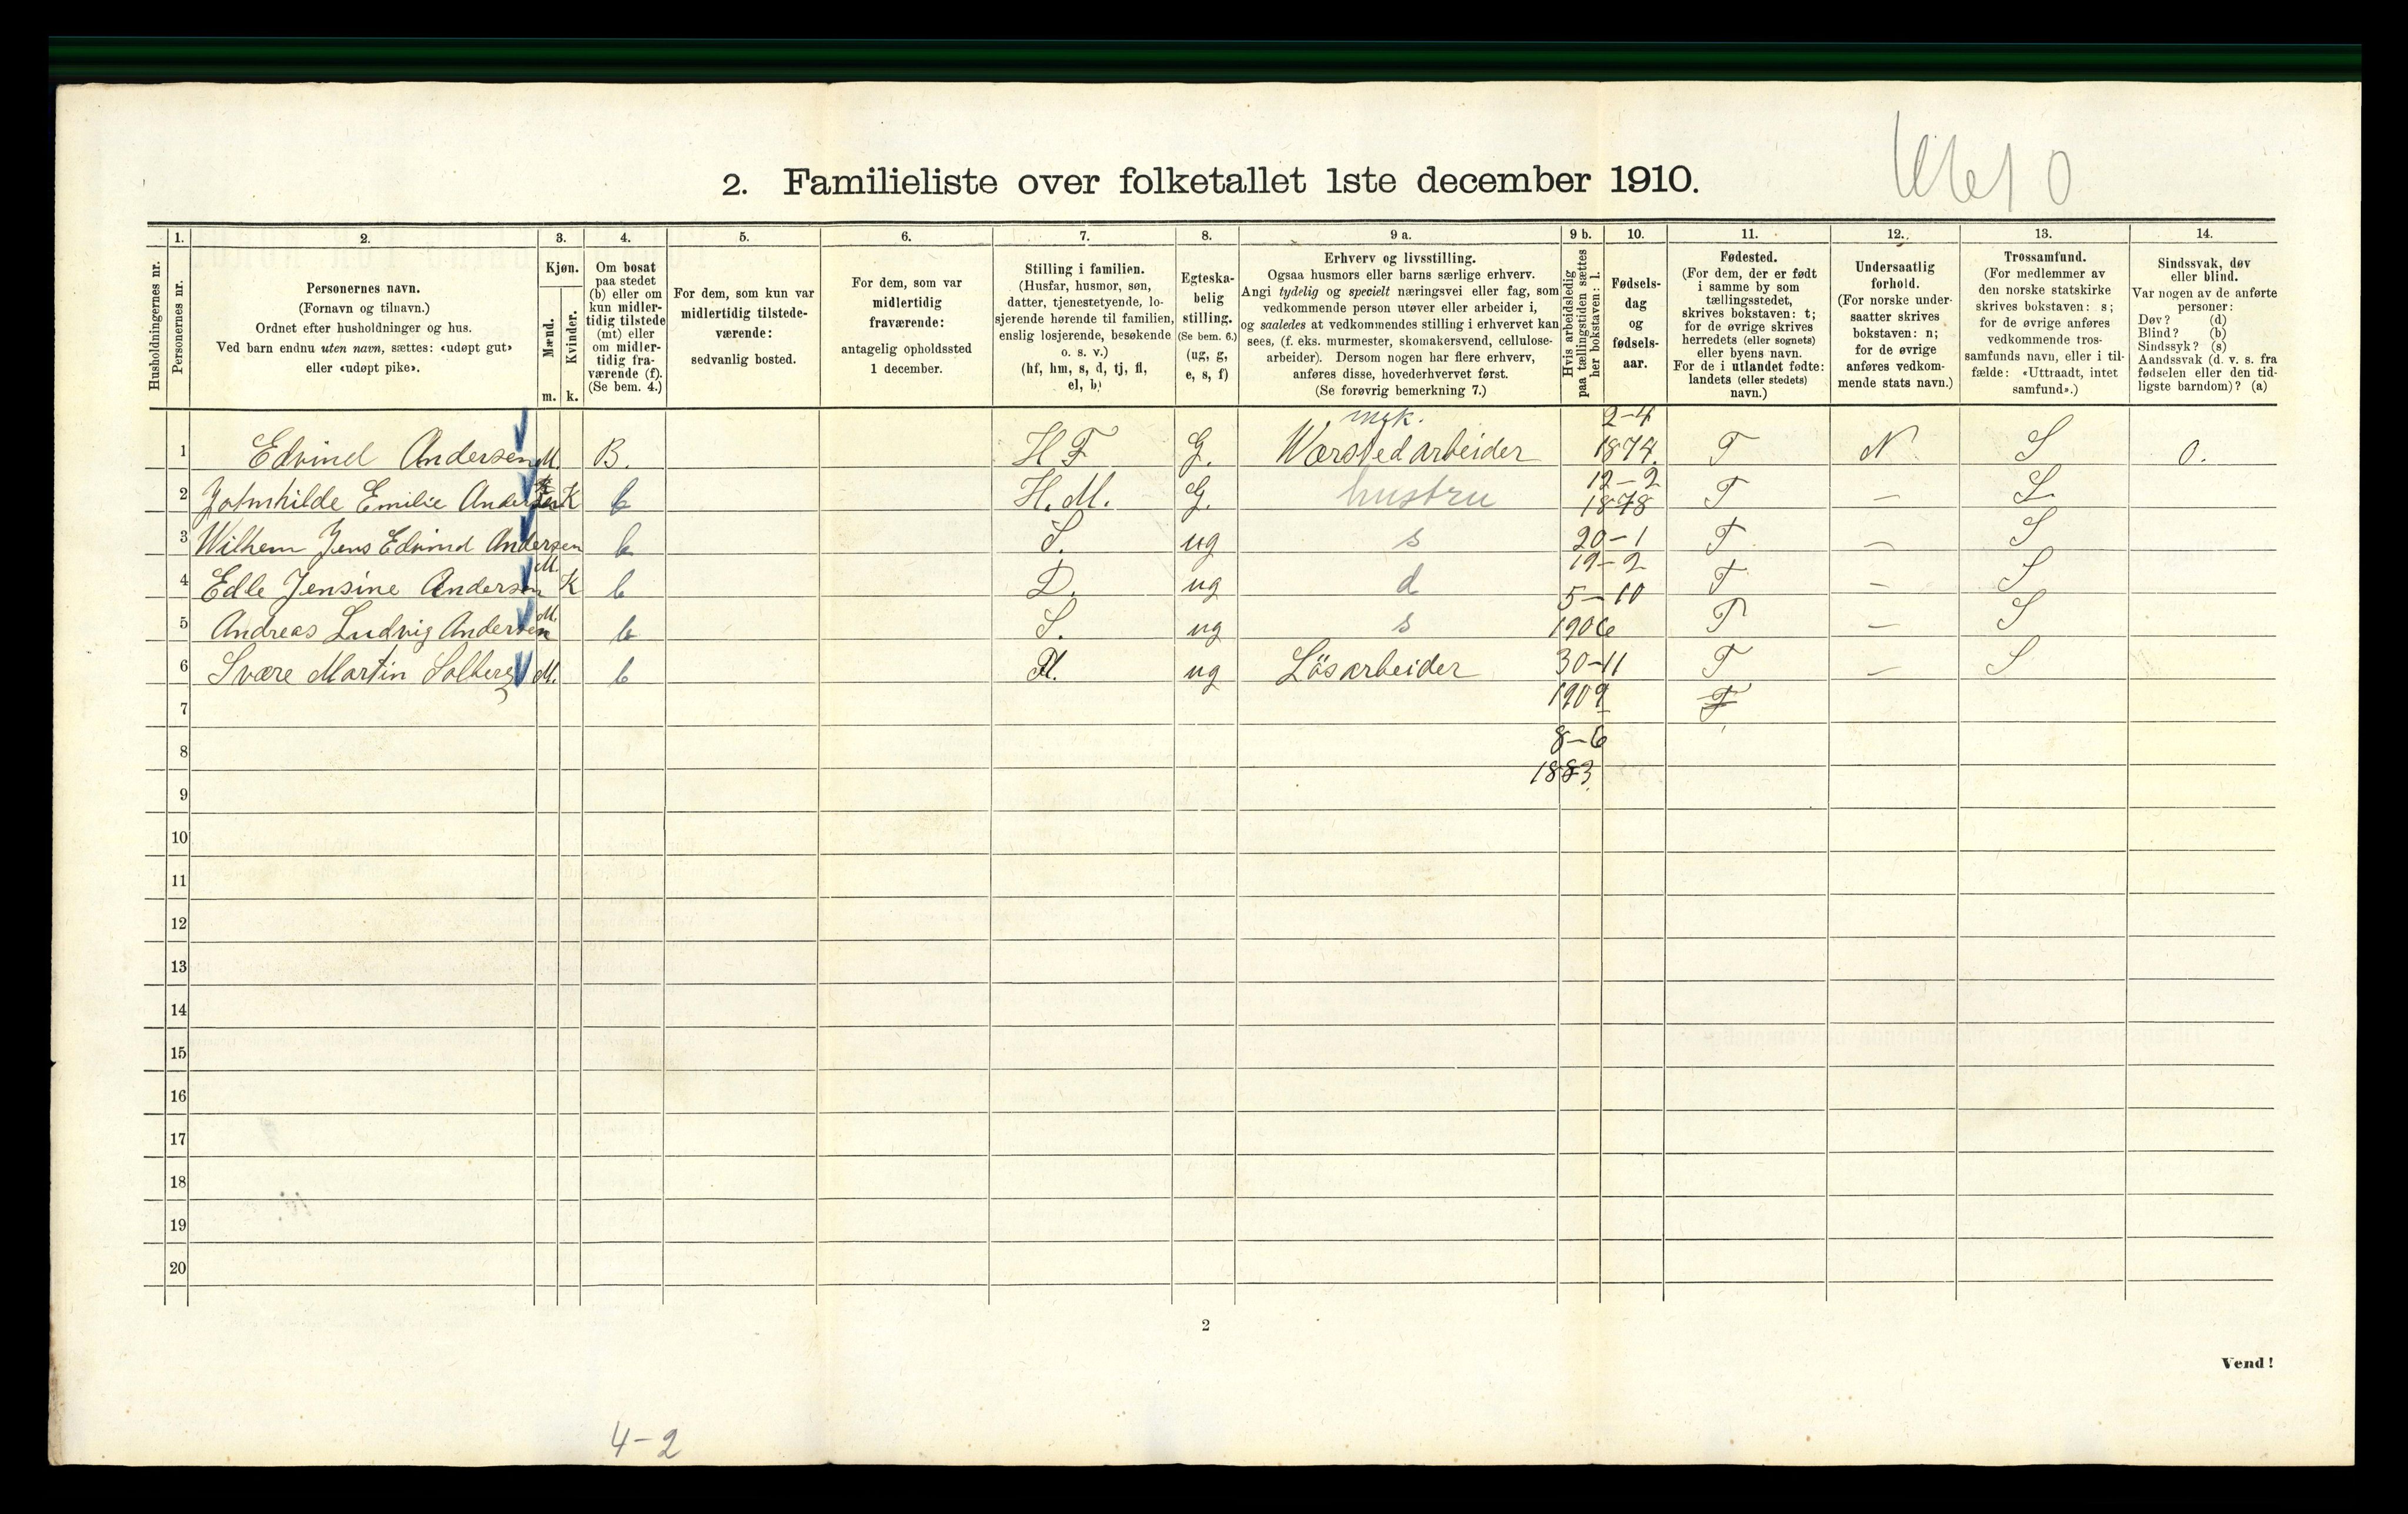 2. Familieliste over folketallet 1ste december 1910.
1. 2. 3. 4. 5. 6. 7. 8. 9 a. 9 b. 10. 11. 12. 13. 14.
Husholdningernes nr.
Personernes nr.
Personernes navn.
(Fornavn og tilnavn.)
Ordnet efter husholdninger og hus.
Ved barn endnu uten navn, sættes: «udøpt gut»
eller «udøpt pike».
Kjøn.
Mænd.
Kvinder.
m. k.
Om bosat
paa stedet
(b) eller om
kun midler-
tidig tilstede
(mt) eller
om midler-
tidig fra-
værende (f).
(Se bem. 4.)
For dem, som kun var
midlertidig tilstede-
værende:
sedvanlig bosted.
For dem, som var
midlertidig
fraværende:
antagelig opholdssted
1 december.
Stilling i familien.
(Husfar, husmor, søn,
datter, tjenestetyende, lo-
sjerende hørende til familien,
enslig losjerende, besøkende
o. s. v.)
(hf, hm, s, d, tj, fl,
el, b)
Egteska-
belig
stilling.
(Se bem. 6.)
(ug, g,
e, s, f)
Erhverv og livsstilling.
Ogsaa husmors eller barns særlige erhverv.
Angi tydelig og specielt næringsvei eller fag, som
vedkommende person utøver eller arbeider i,
og saaledes at vedkommendes stilling i erhvervet kan
sees, (f. eks. murmester, skomakersvend, cellulose-
arbeider). Dersom nogen har flere erhverv,
anføres disse, hovederhvervet først.
(Se forøvrig bemerkning 7.)
Hvis arbeidsledig
paa tællingstiden sættes
her bokstaven: l.
Fødsels-
dag
og
fødsels-
aar.
Fødested.
(For dem, der er født
i samme by som
tællingsstedet,
skrives bokstaven: t;
for de øvrige skrives
herredets (eller sognets)
eller byens navn.
For de i utlandet fødte:
landets (eller stedets)
navn.)
Undersaatlig
forhold.
(For norske under-
saatter skrives
bokstaven: n;
for de øvrige
anføres vedkom-
mende stats navn.)
Trossamfund.
(For medlemmer av
den norske statskirke
skrives bokstaven: s;
for de øvrige anføres
vedkommende tros-
samfunds navn, eller i til-
fælde: «Uttraadt, intet
samfund».)
Sindssvak, døv
eller blind.
Var nogen av de anførte
personer:
Døv? (d)
Blind? (b)
Sindssyk? (s)
Aandssvak (d. v. s. fra
fødselen eller den tid-
ligste barndom)? (a)
mek. 2-4
1 Edvind Andersen M. B. H F G. Wærsted arbeider 1874. T N S 0.
12-2
2 Emilie Andersen K b H. M. G. hustru 1878 T – S
3 Wilhem Jens Edvind Andersen b S. ug s 20-1 T – S
M. 19-2
4 Edle Jensine Andersen K b D. ug d 5-10 T – S
5 Andreas Ludvig Andersen M. b S. ug s 1906 T – S
6 Svære Martin Solberg M. b ug Lösarbeider 30-11 T – S
7 1909 T
8 8-6
1883.
9
10
11
12
13
14
15
16
17
18
19
20
2
Vend!
4-2